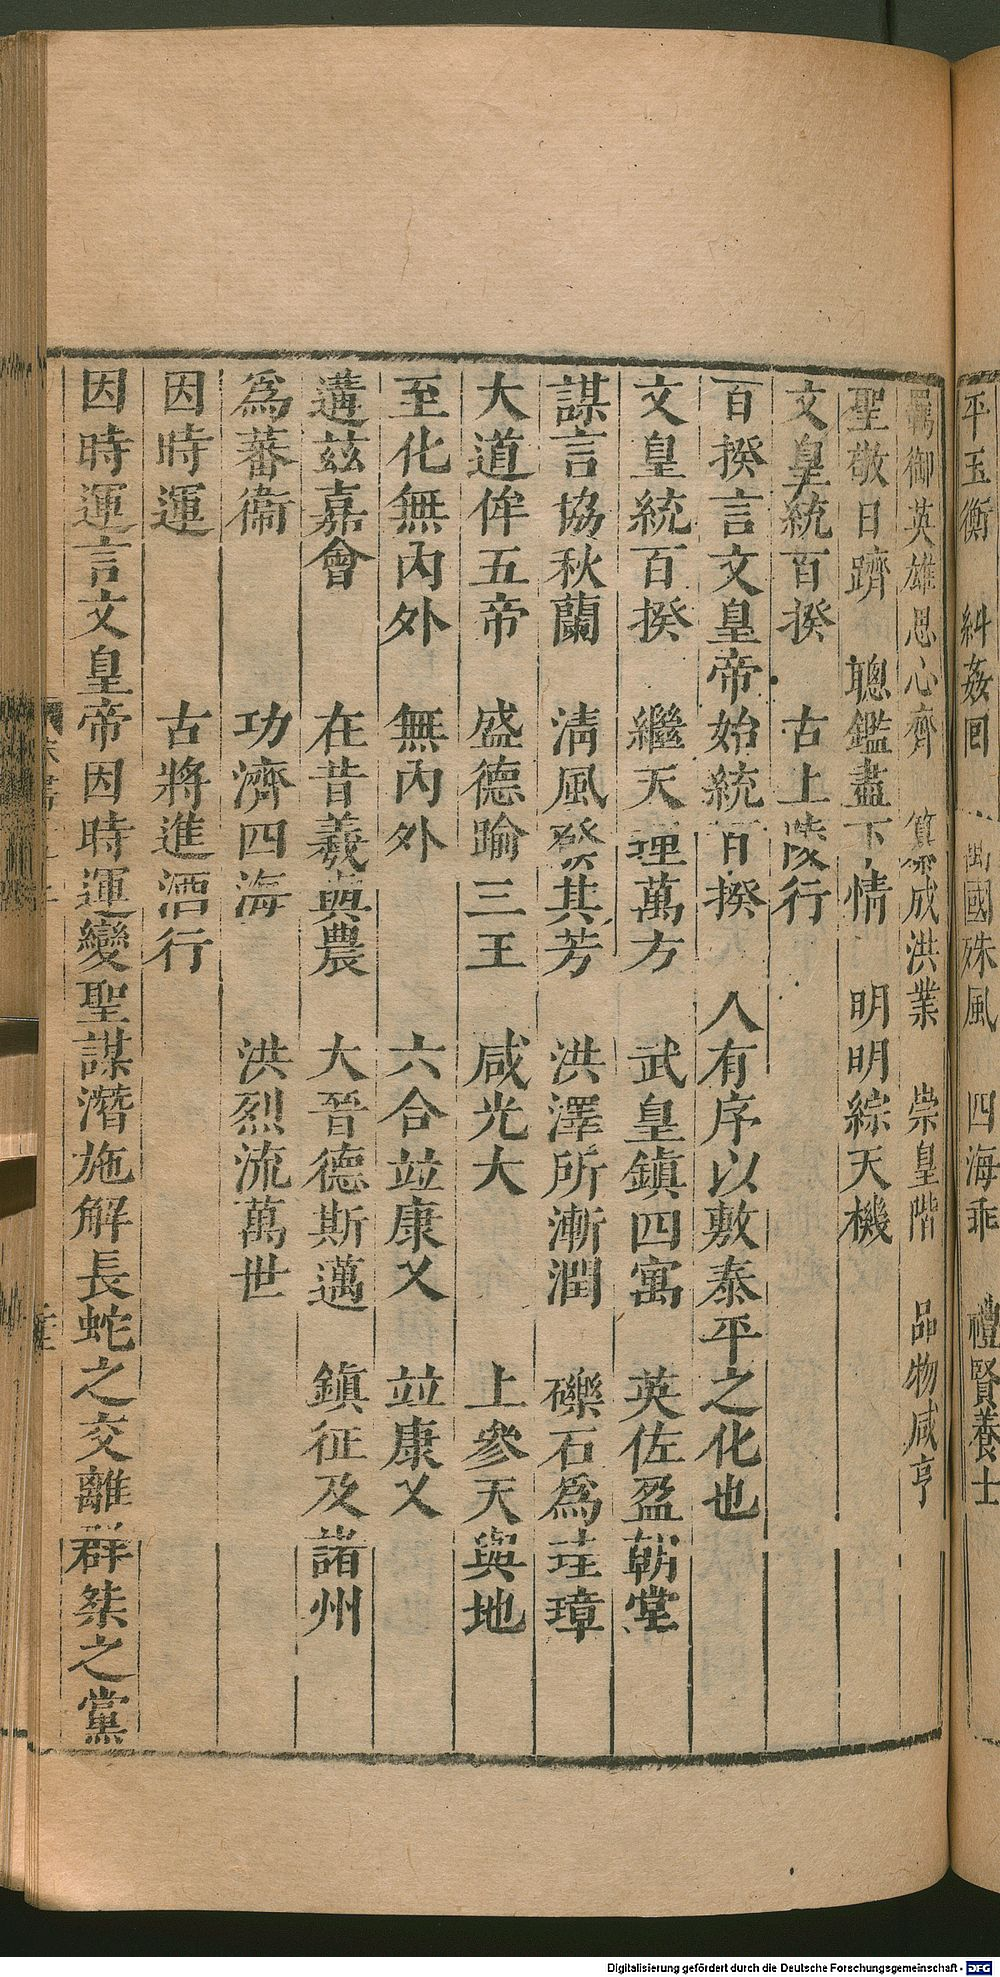 平玉衡　糾姦回　萬國殊風　四海乖　禮賢養士
羈御英雄思心齊　纂成洪業　崇皇階　品物咸亨
聖敬日躋　聰鑑盡下情　明明綜天機
文皇統百揆　古上陵行
百揆言文皇帝始統百揆　人有序以敷泰平之化也
文皇統百揆　繼天理萬方　武皇鎮四寓　英佐盈朝堂
謀言協秋蘭　清風發其芳　洪澤所漸潤　礫石為珪璋
大道侔五帝　盛德踰三王　咸光大　上參天與地
至化無內外　無內外　六合竝康乂　竝康乂
遘茲嘉會　在昔羲與農　大晉德斯邁　鎮征及諸州
為蕃衞　功濟四海　洪烈流萬世
因時運　古將進酒行
因時運言文皇帝因時運變聖謀潛施解長蛇之交離群桀之黨
Digitalisierung gefördert durch die Deutsche Forschungsgemeinschaft - DFG